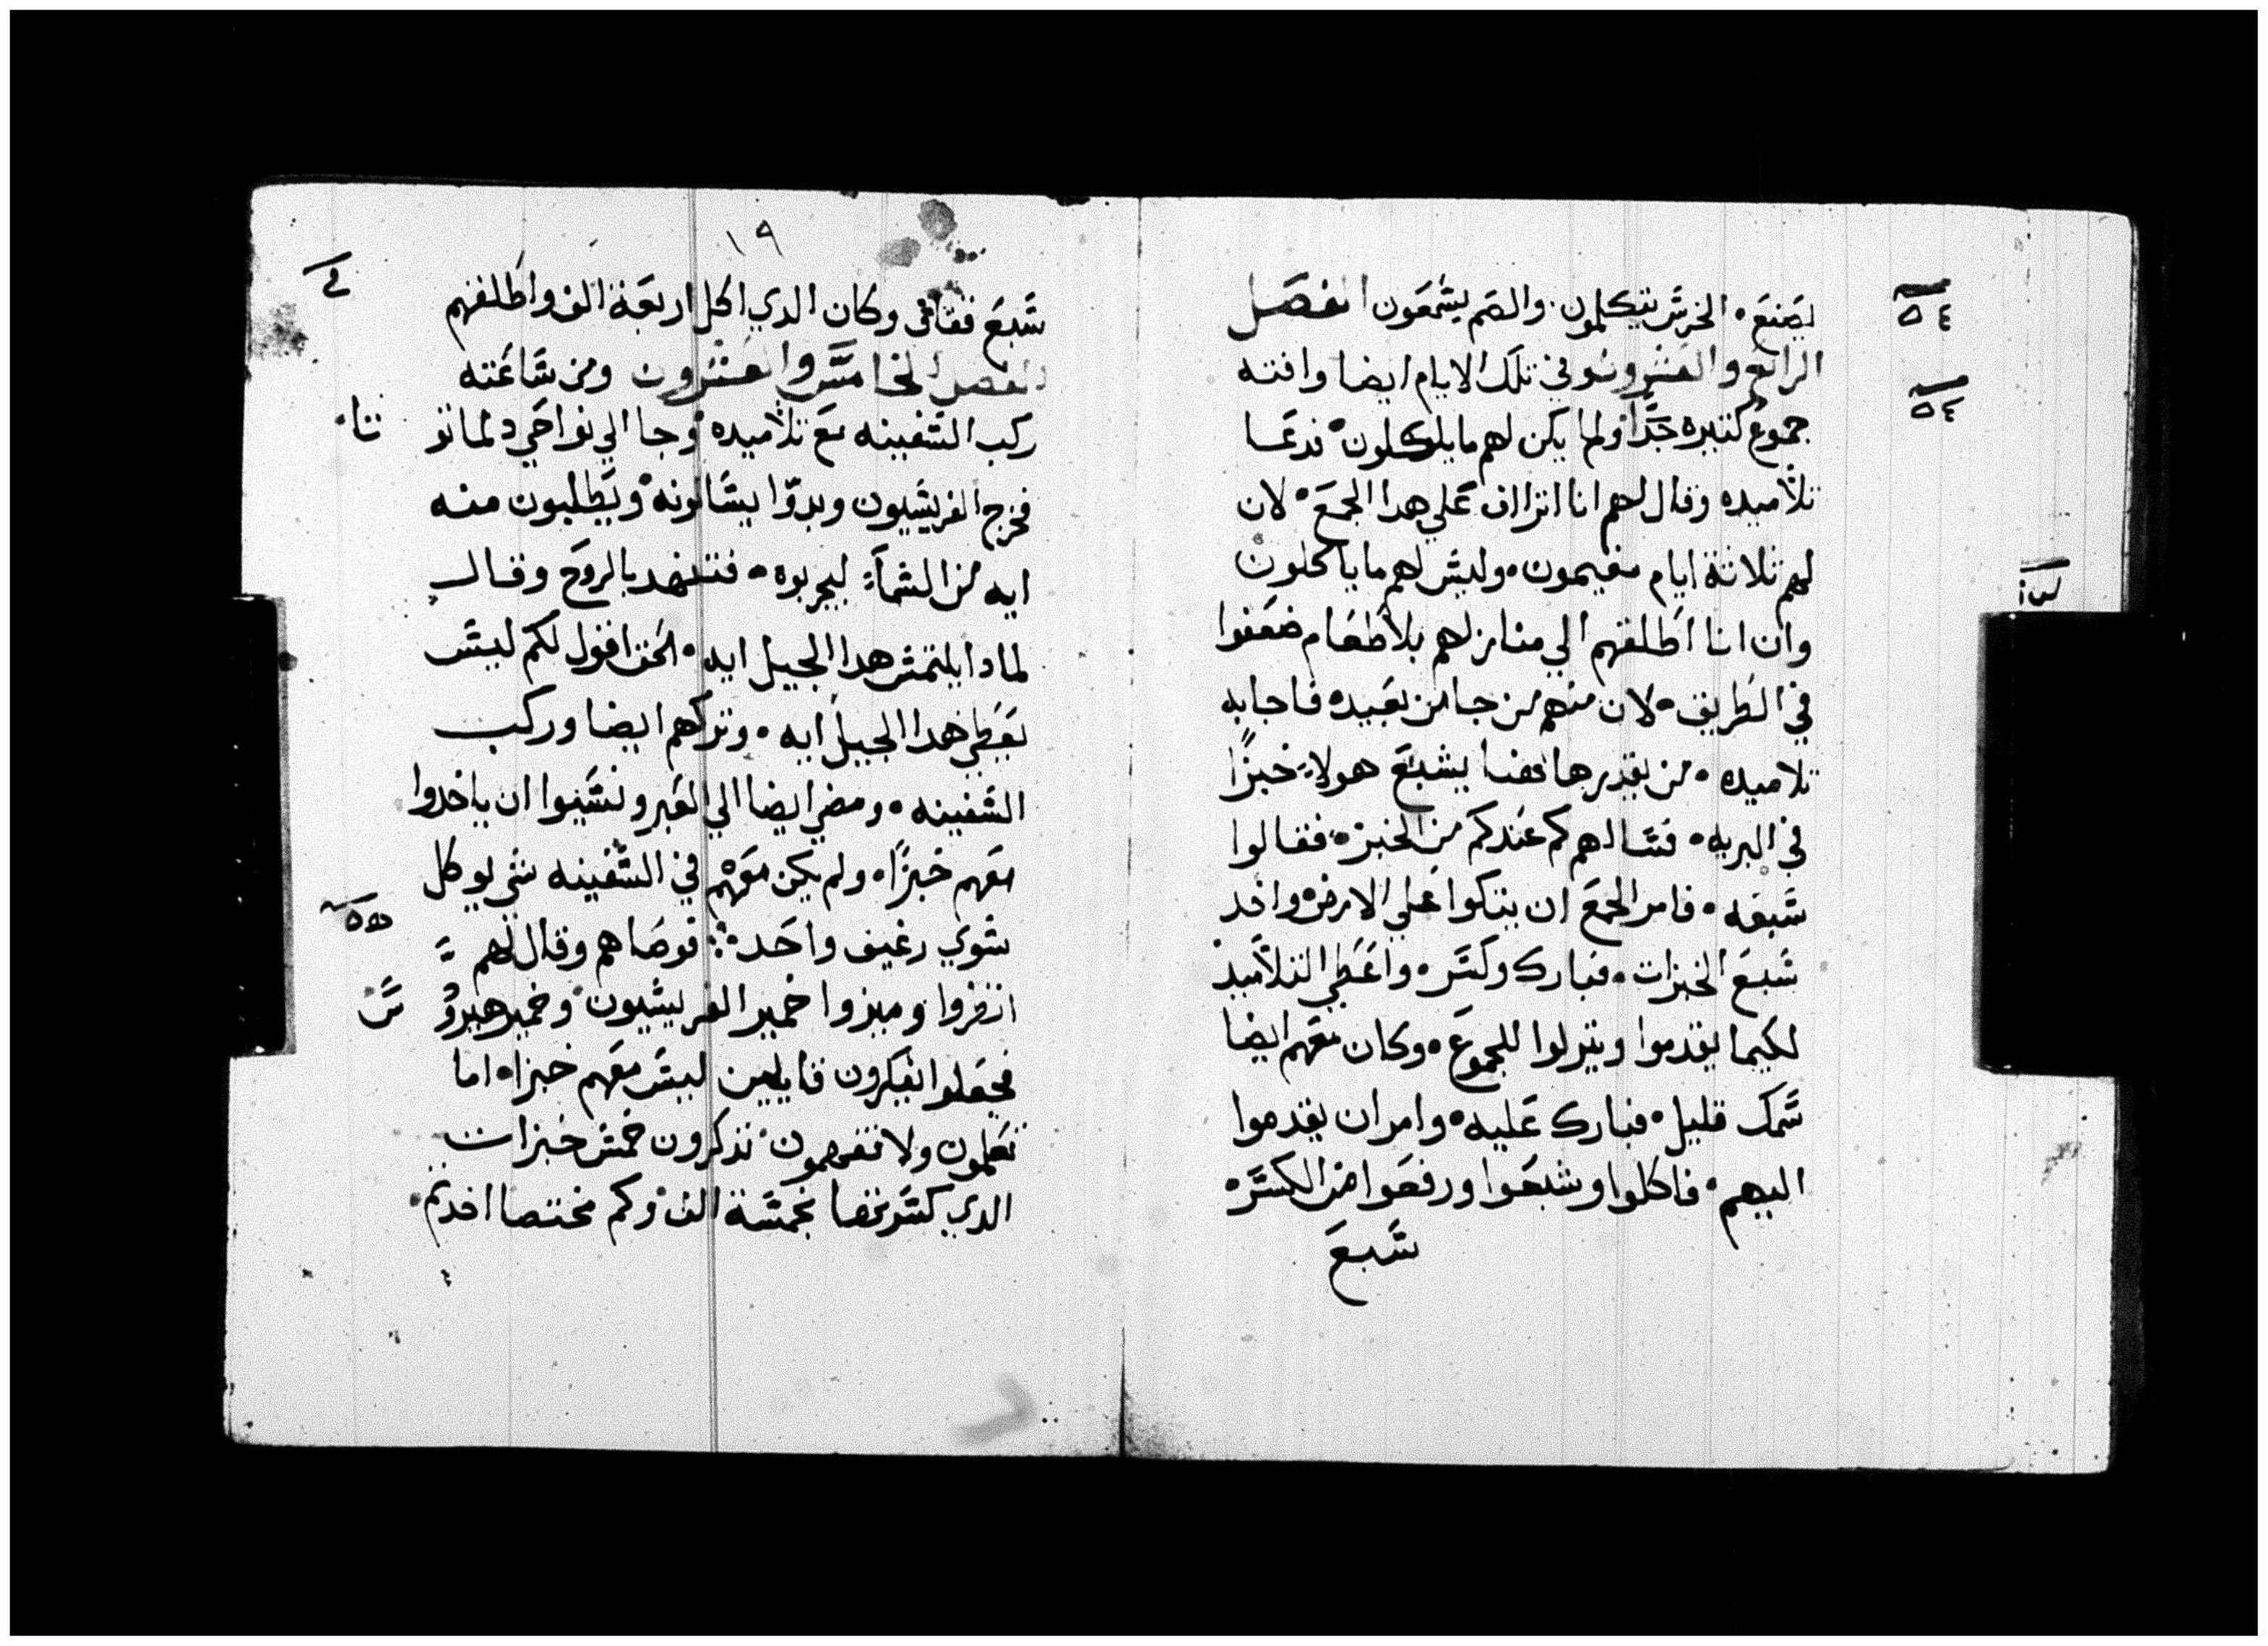 يصنع۰ الخرش يتكلمون. والصم يشمعون الفصل
الرابع والعشرون وفي تلك الايام ايضا وافته
جموع كتيره جدًا ولم يكن لهم ما ياكلون۰ فدعا
تلاميده وقال لهم انا اتراف علي هدا الجمع۰ لان
لهم تلاتة ايام مقيمون۰ وليش لهم ما ياكلون
وان انا اطلقهم الي منازلهم بلا طعام ضعفوا
في الطريق۰ لان منهم من جا من بعيد۰ فاجابه
تلاميده۰ من يقدر هاهنا يشبع هولاء خبزًا
في البريه۰ فشالهم كم عندكم من الخبز۰ فقالوا
شبعه۰ فامر الجمع ان يتكوا علي الارض۰ واخد
شبع الخبزات۰ فبارك وكشر۰ واعطي التلاميد
لكيما يقدموا ويتركوا للجموع۰ وكان معهم ايضا
شمك قليل۰ فبارك عليه۰ وامر ان يقدموا
اليهم۰ فاكلوا وشبعوا ورفعوا من الكشر۰
شبع
٥٤
٥٤
١٩
شبع قفاف وكان الدي اكل اربعة الف واطلقهم
الفصل الخامش والعشرون ومن شاعته
ركب الشفينه مع تلاميده وجا الي نواحي دلمانو
تا۰
فخرج الفريشيون وبدوا يشالونه ويطلبون منه
ايه من الشماء ليجربوه۰ فتنهد بالروح وقال
لمادا يلتمش هدا الجيل ايه۰ الحق اقول لكم ليش
يعطي هدا الجيل ايه۰ وتركهم ايضا وركب
الشفينه۰ ومضي ايضا الي العبر ونشيوا ان ياخدوا
معهم خبزًا۰ ولم يكن معهم في الشفينه شي يوكل
شوي رغيف واحد۰ فوصاهم وقال لهم
انظروا وميزوا خمير الفريشيون۰ وخمير هيرودش
فجعلوا يفكرون قايلين ليش معهم خبزا۰ اما
تعلمون ولا تفهمون۰ تدكرون خمش خبزات
الدي كشرتها لخمشة الف وكم مختصا اخدتم۰
٥٥